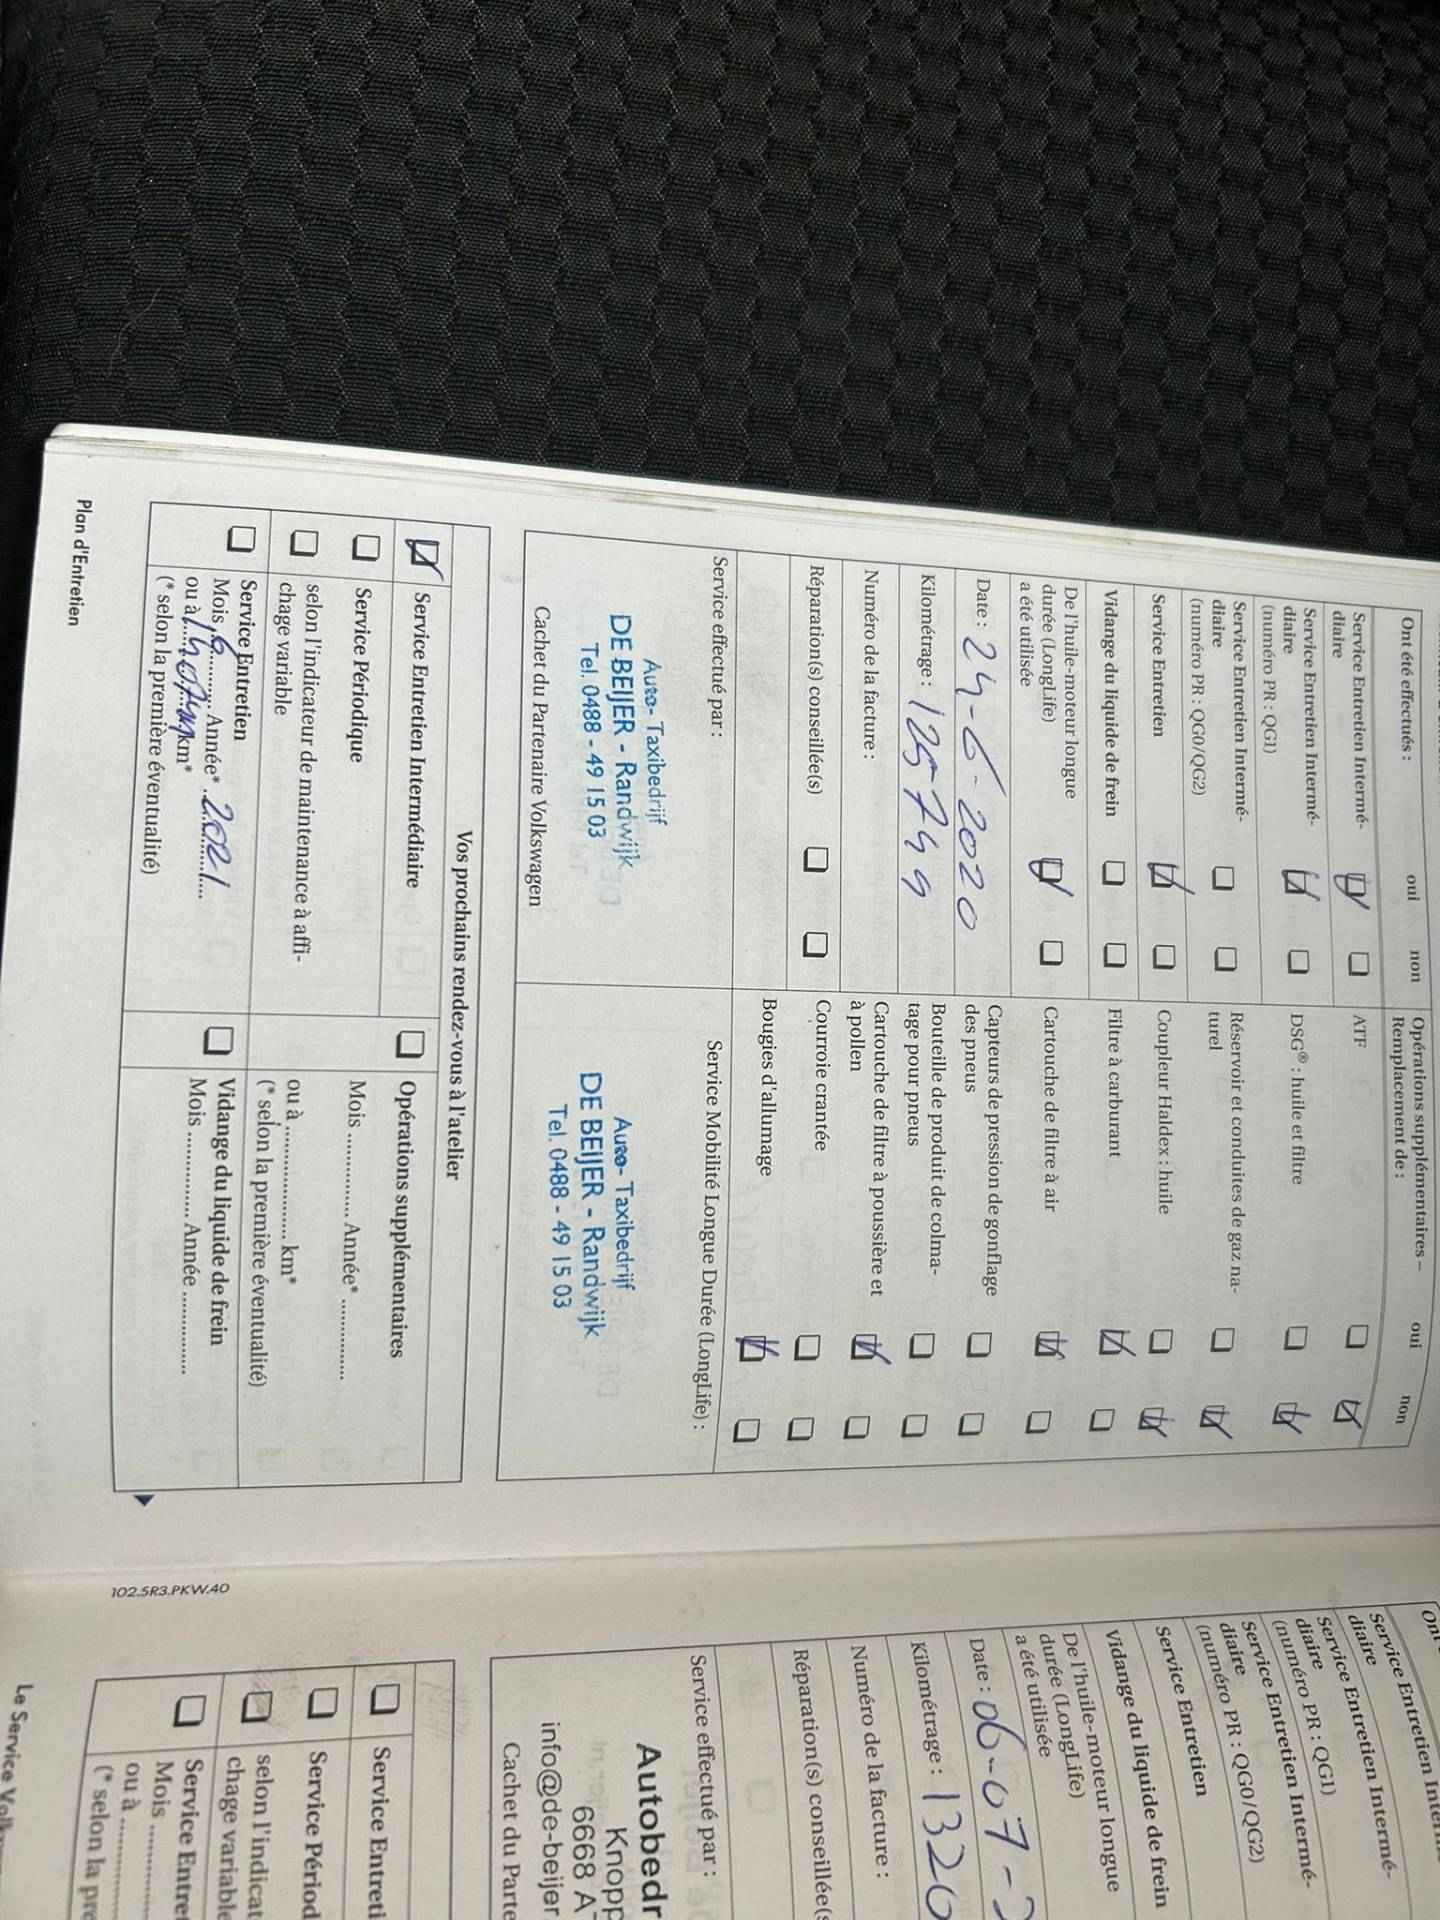 Ont été effectués :
oui
non
Service Entretien Intermé-
diaire
Service Entretien Intermé-
diaire
(numéro PR : QG1)
Service Entretien Intermé-
diaire
(numéro PR : QG0/QG2)
Service Entretien
Vidange du liquide de frein
De l'huile-moteur longue
durée (LongLife)
a été utilisée
Date : 24-6-2020
Kilométrage :
Numéro de la facture :
Réparation(s) conseillée(s)
Opérations supplémentaires –
Remplacement de :
oui
non
ATF
DSG® : huile et filtre
Réservoir et conduites de gaz na-
turel
Coupleur Haldex : huile
Filtre à carburant
Cartouche de filtre à air
Capteurs de pression de gonflage
des pneus
Bouteille de produit de colma-
tage pour pneus
Cartouche de filtre à poussière et
à pollen
Courroie crantée
Bougies d'allumage
Service effectué par :
Auto- Taxibedrijf
DE BEIJER - Randwijk
Tel. 0488 - 49 15 03
Cachet du Partenaire Volkswagen
Service Mobilité Longue Durée (LongLife) :
Auto- Taxibedrijf
DE BEIJER - Randwijk
Tel. 0488 - 49 15 03
Vos prochains rendez-vous à l'atelier
Service Entretien Intermédiaire
Service Périodique
selon l'indicateur de maintenance à affi-
chage variable
Service Entretien
Mois 6 Année* 2021
ou à km*
(* selon la première éventualité)
Opérations supplémentaires
Mois ............... Année* ...............
ou à .................... km*
(* selon la première éventualité)
Vidange du liquide de frein
Mois ............... Année ...............
Plan d'Entretien
102.5R3.PKW.40
Service Entretien Intermé-
diaire
Service Entretien Intermé-
diaire
(numéro PR : QG1)
Service Entretien Intermé-
diaire
(numéro PR : QG0/QG2)
Service Entretien
Vidange du liquide de frein
De l'huile-moteur longue
durée (LongLife)
a été utilisée
Date : 06-07-2
Kilométrage : 1320
Numéro de la facture :
Réparation(s) conseillée(s
Service effectué par :
Autobedr
Knopp
6668 A
info@de-beijer
Cachet du Parte
Service Entreti
Service Périod
selon l'indicat
chage variable
Service Entre
Mois
ou à
(* selon la pre
Le Service Volk